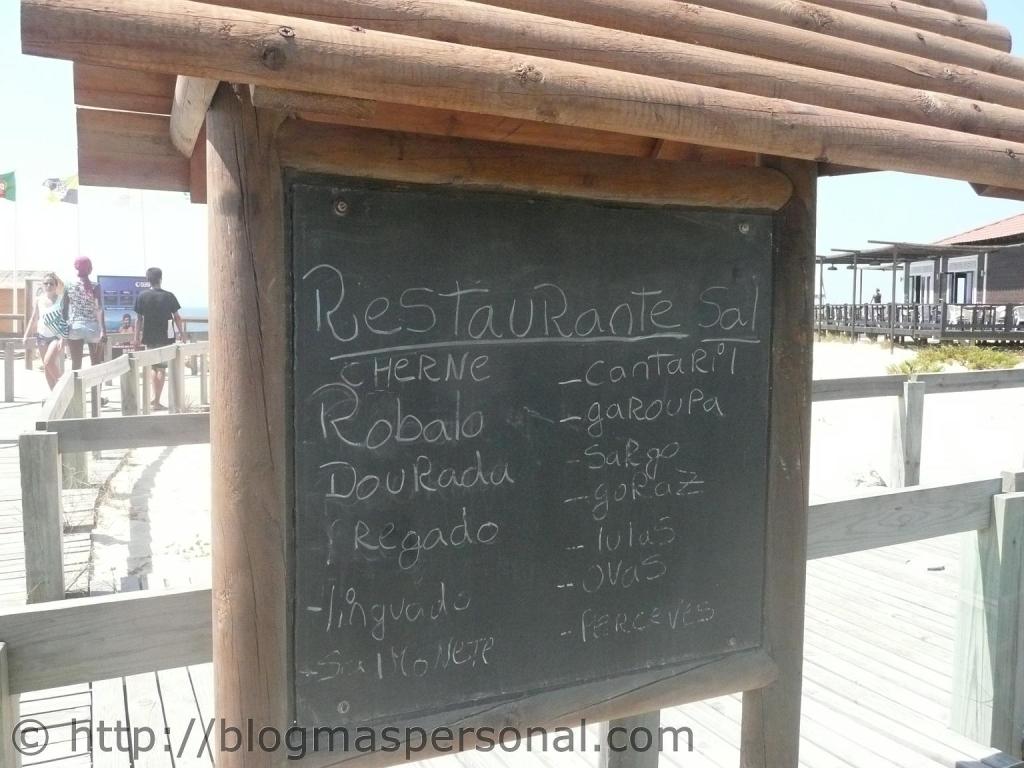 Restaurante Sal
CHERNE
Robalo
DOURADA
Pregado
-linguado
-SalMONETE
-CantaRil
-gaROUPa
-SaRgo
-goRaZ
-lulas
-ovas
-PERCEVES
© http://blogmaspersonal.com